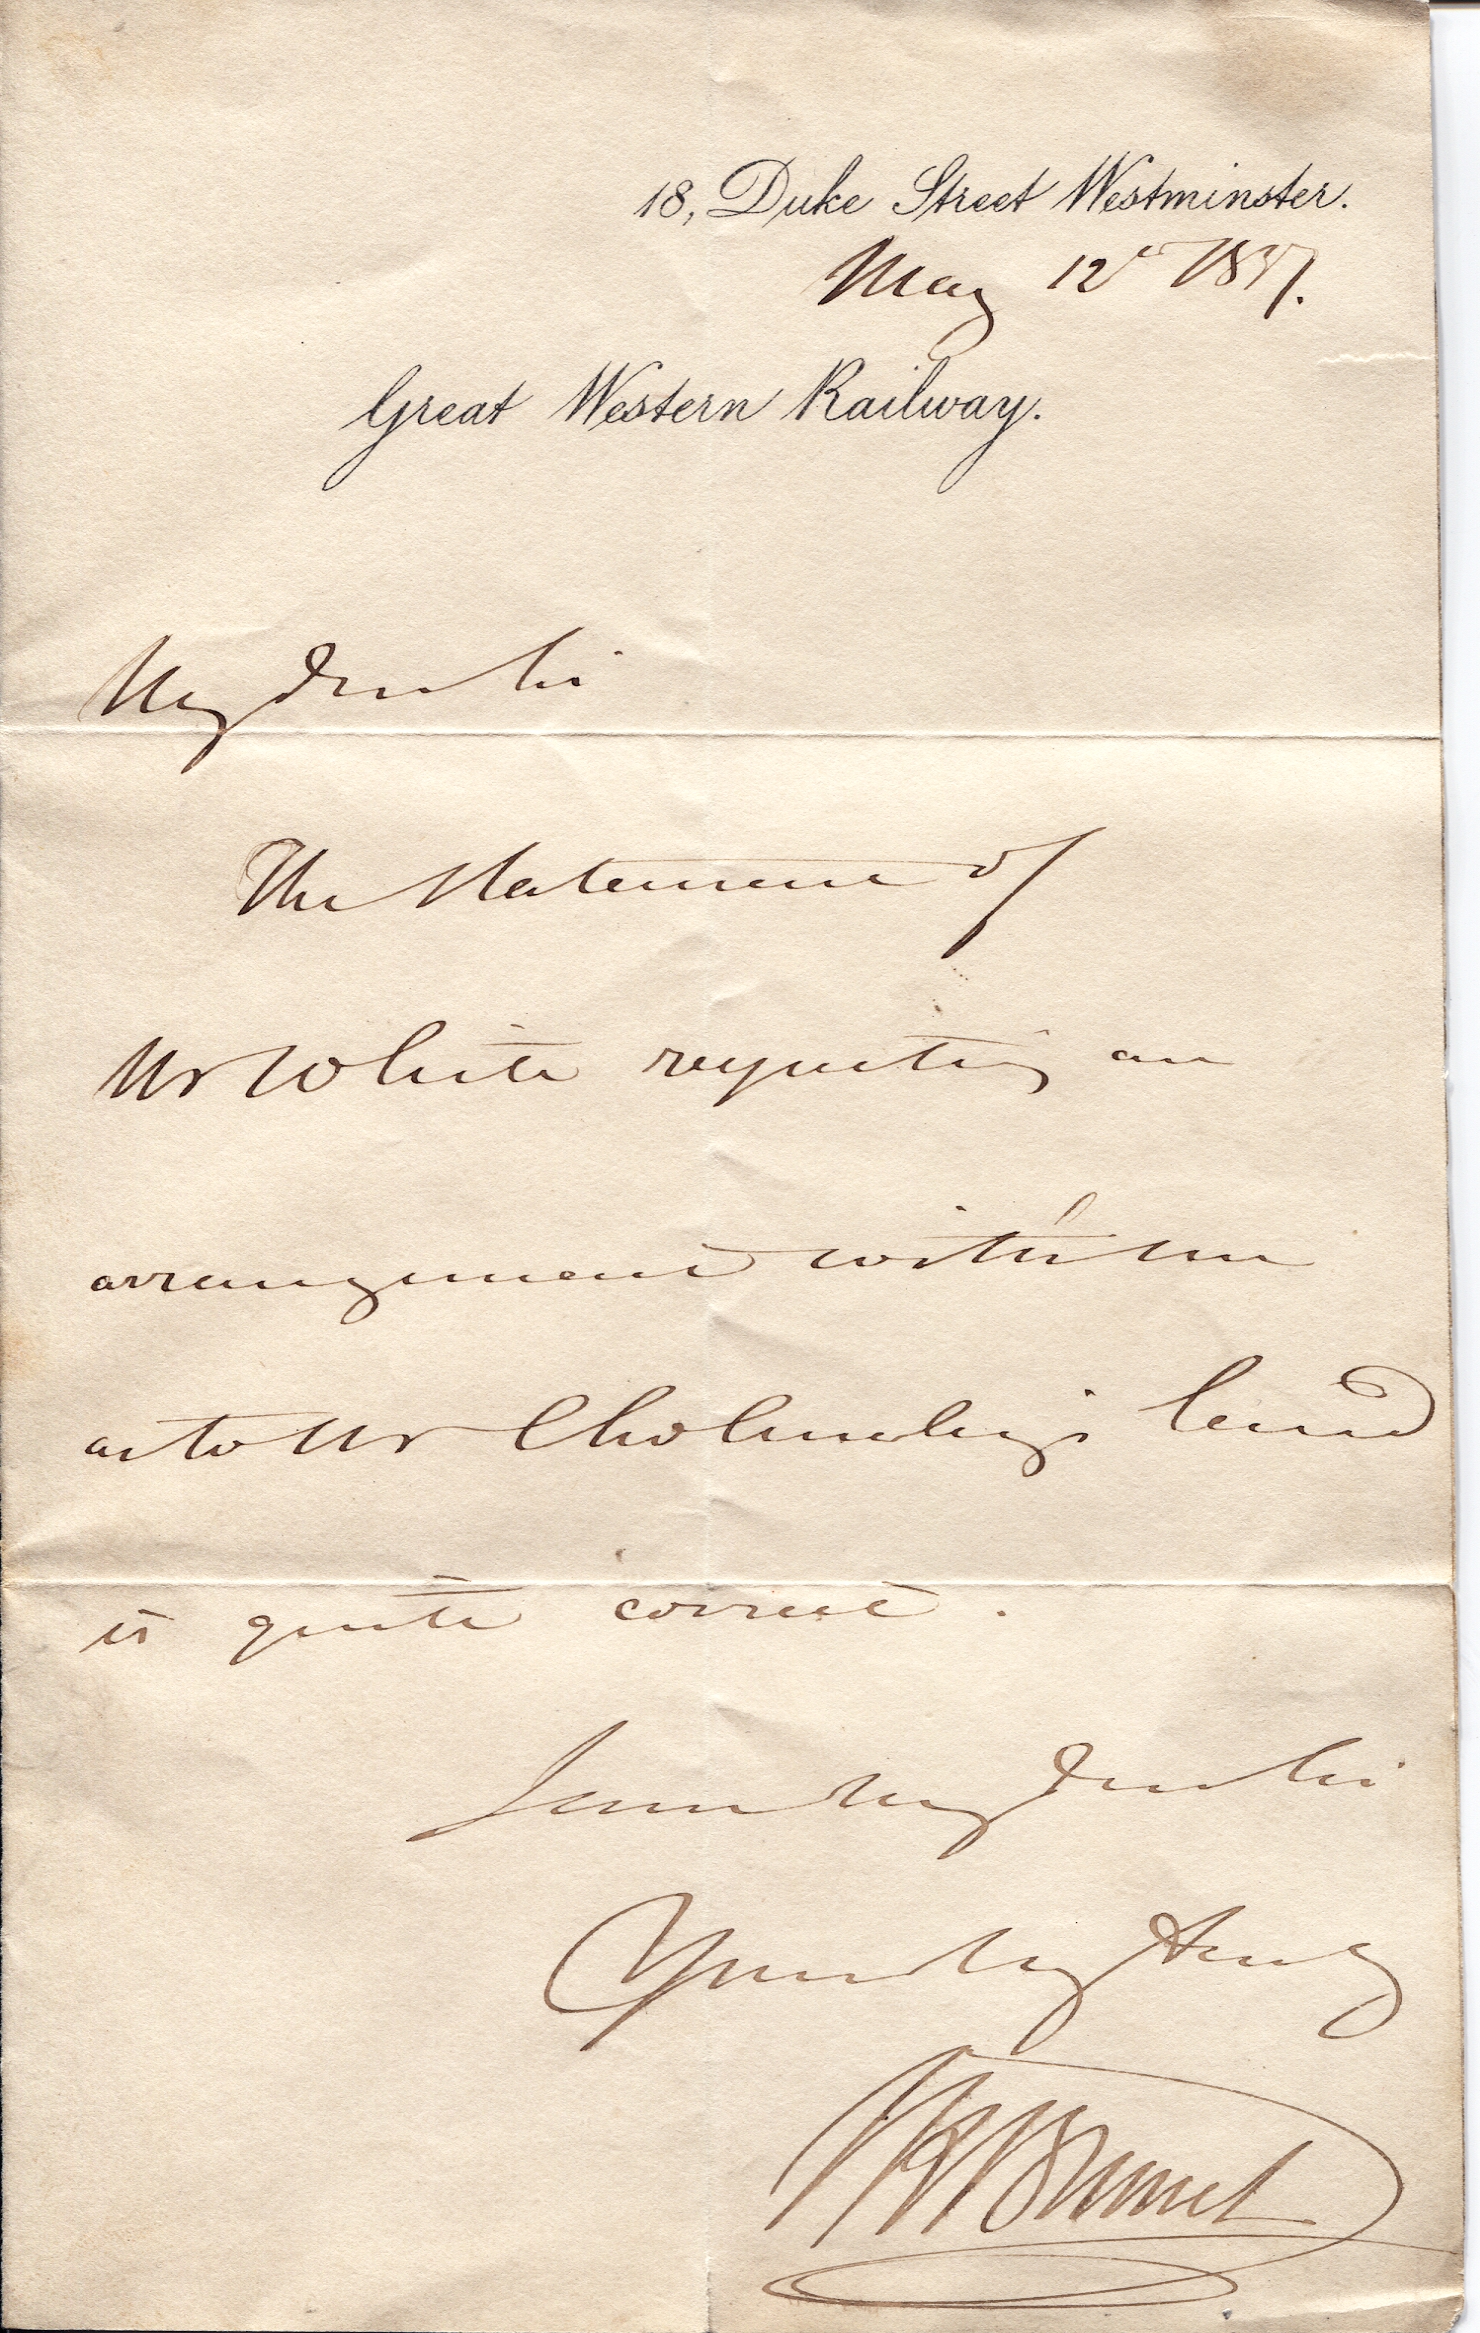 18, Duke Street Westminster.
May 12th 1837.
Great Western Railway.
My dear Sir
The statement of
Mr White respecting an
arrangement with me
as to Mr Cholmeley's land
is quite correct.
I am my dear Sir
Yours very truly
I K Brunel